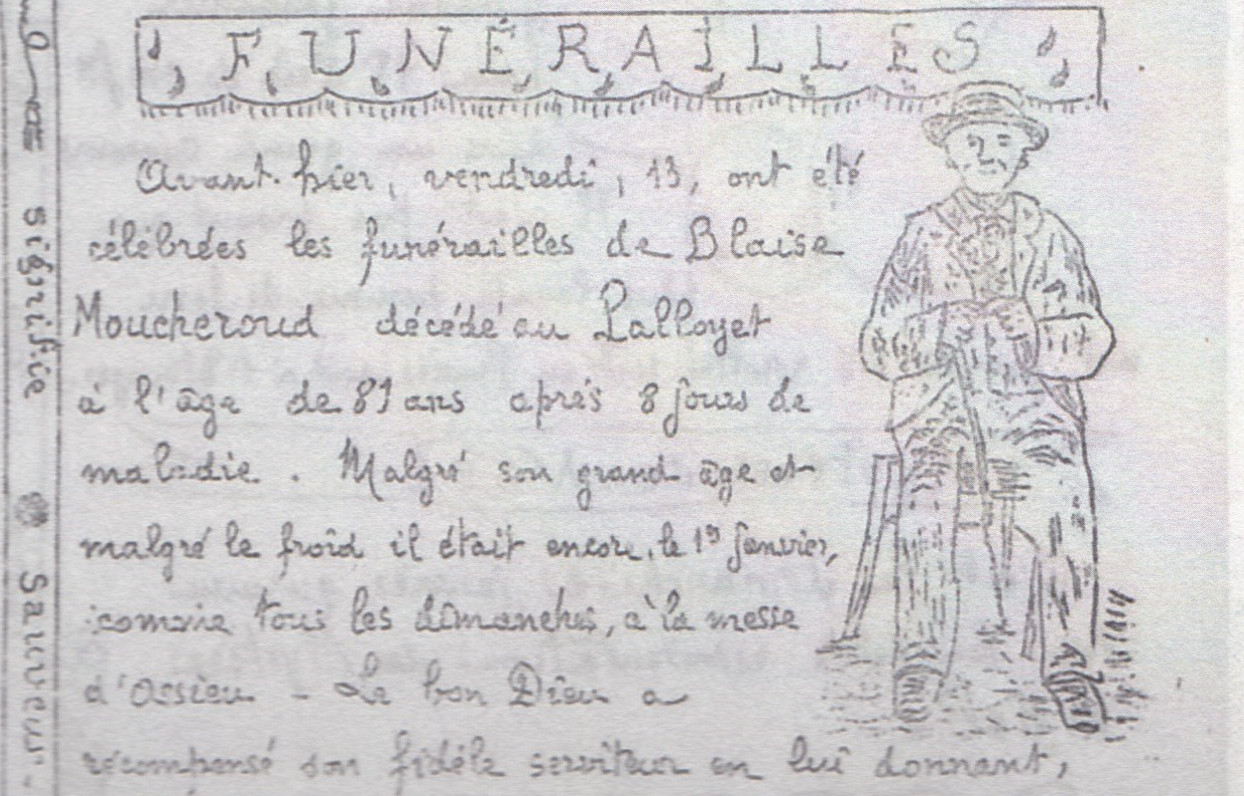 FUNÉRAILLES
Avant-hier, vendredi, 13, ont été
célébrées les funérailles de Blaise
Moucheroud décédé au Lalloyet
à l'âge de 81 ans après 8 jours de
maladie. Malgré son grand âge et
malgré le froid il était encore, le 1er janvier,
comme tous les dimanches, à la messe
d'Assieu - Le bon Dieu a
récompensé son fidèle serviteur en lui donnant,
signifie Sauveur.